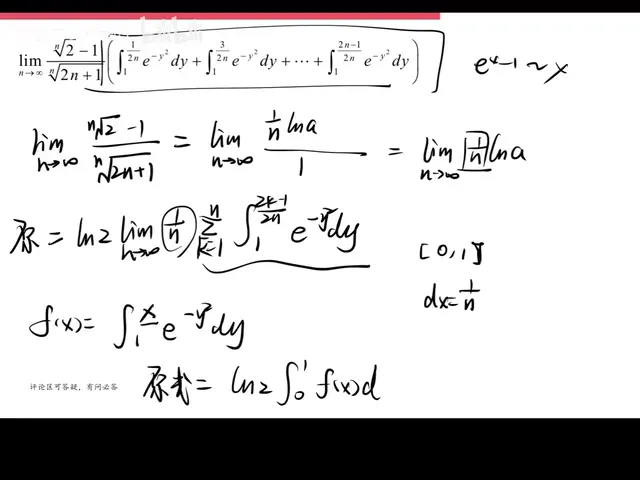 lim_{n→∞} \frac{\sqrt[n]{2}-1}{\sqrt[n]{2n+1}} ( ∫_1^{\frac{1}{2n}} e^{-y^2} dy + ∫_1^{\frac{3}{2n}} e^{-y^2} dy + ⋯ + ∫_1^{\frac{2n-1}{2n}} e^{-y^2} dy )
e^x-1 ~ x
lim_{n→∞} \frac{\sqrt[n]{2}-1}{\sqrt[n]{2n+1}} = lim_{n→∞} \frac{\frac{1}{n} ln a}{1} = lim_{n→∞} \frac{1}{n} ln a
原 = ln2 lim_{n→∞} \frac{1}{n} Σ_{k=1}^{n} ∫_1^{\frac{2k-1}{2n}} e^{-y^2} dy
[0,1]
dx = \frac{1}{n}
f(x) = ∫_1^x e^{-y^2} dy
原式 = ln2 ∫_0^1 f(x) d
评论区可答疑，有问必答